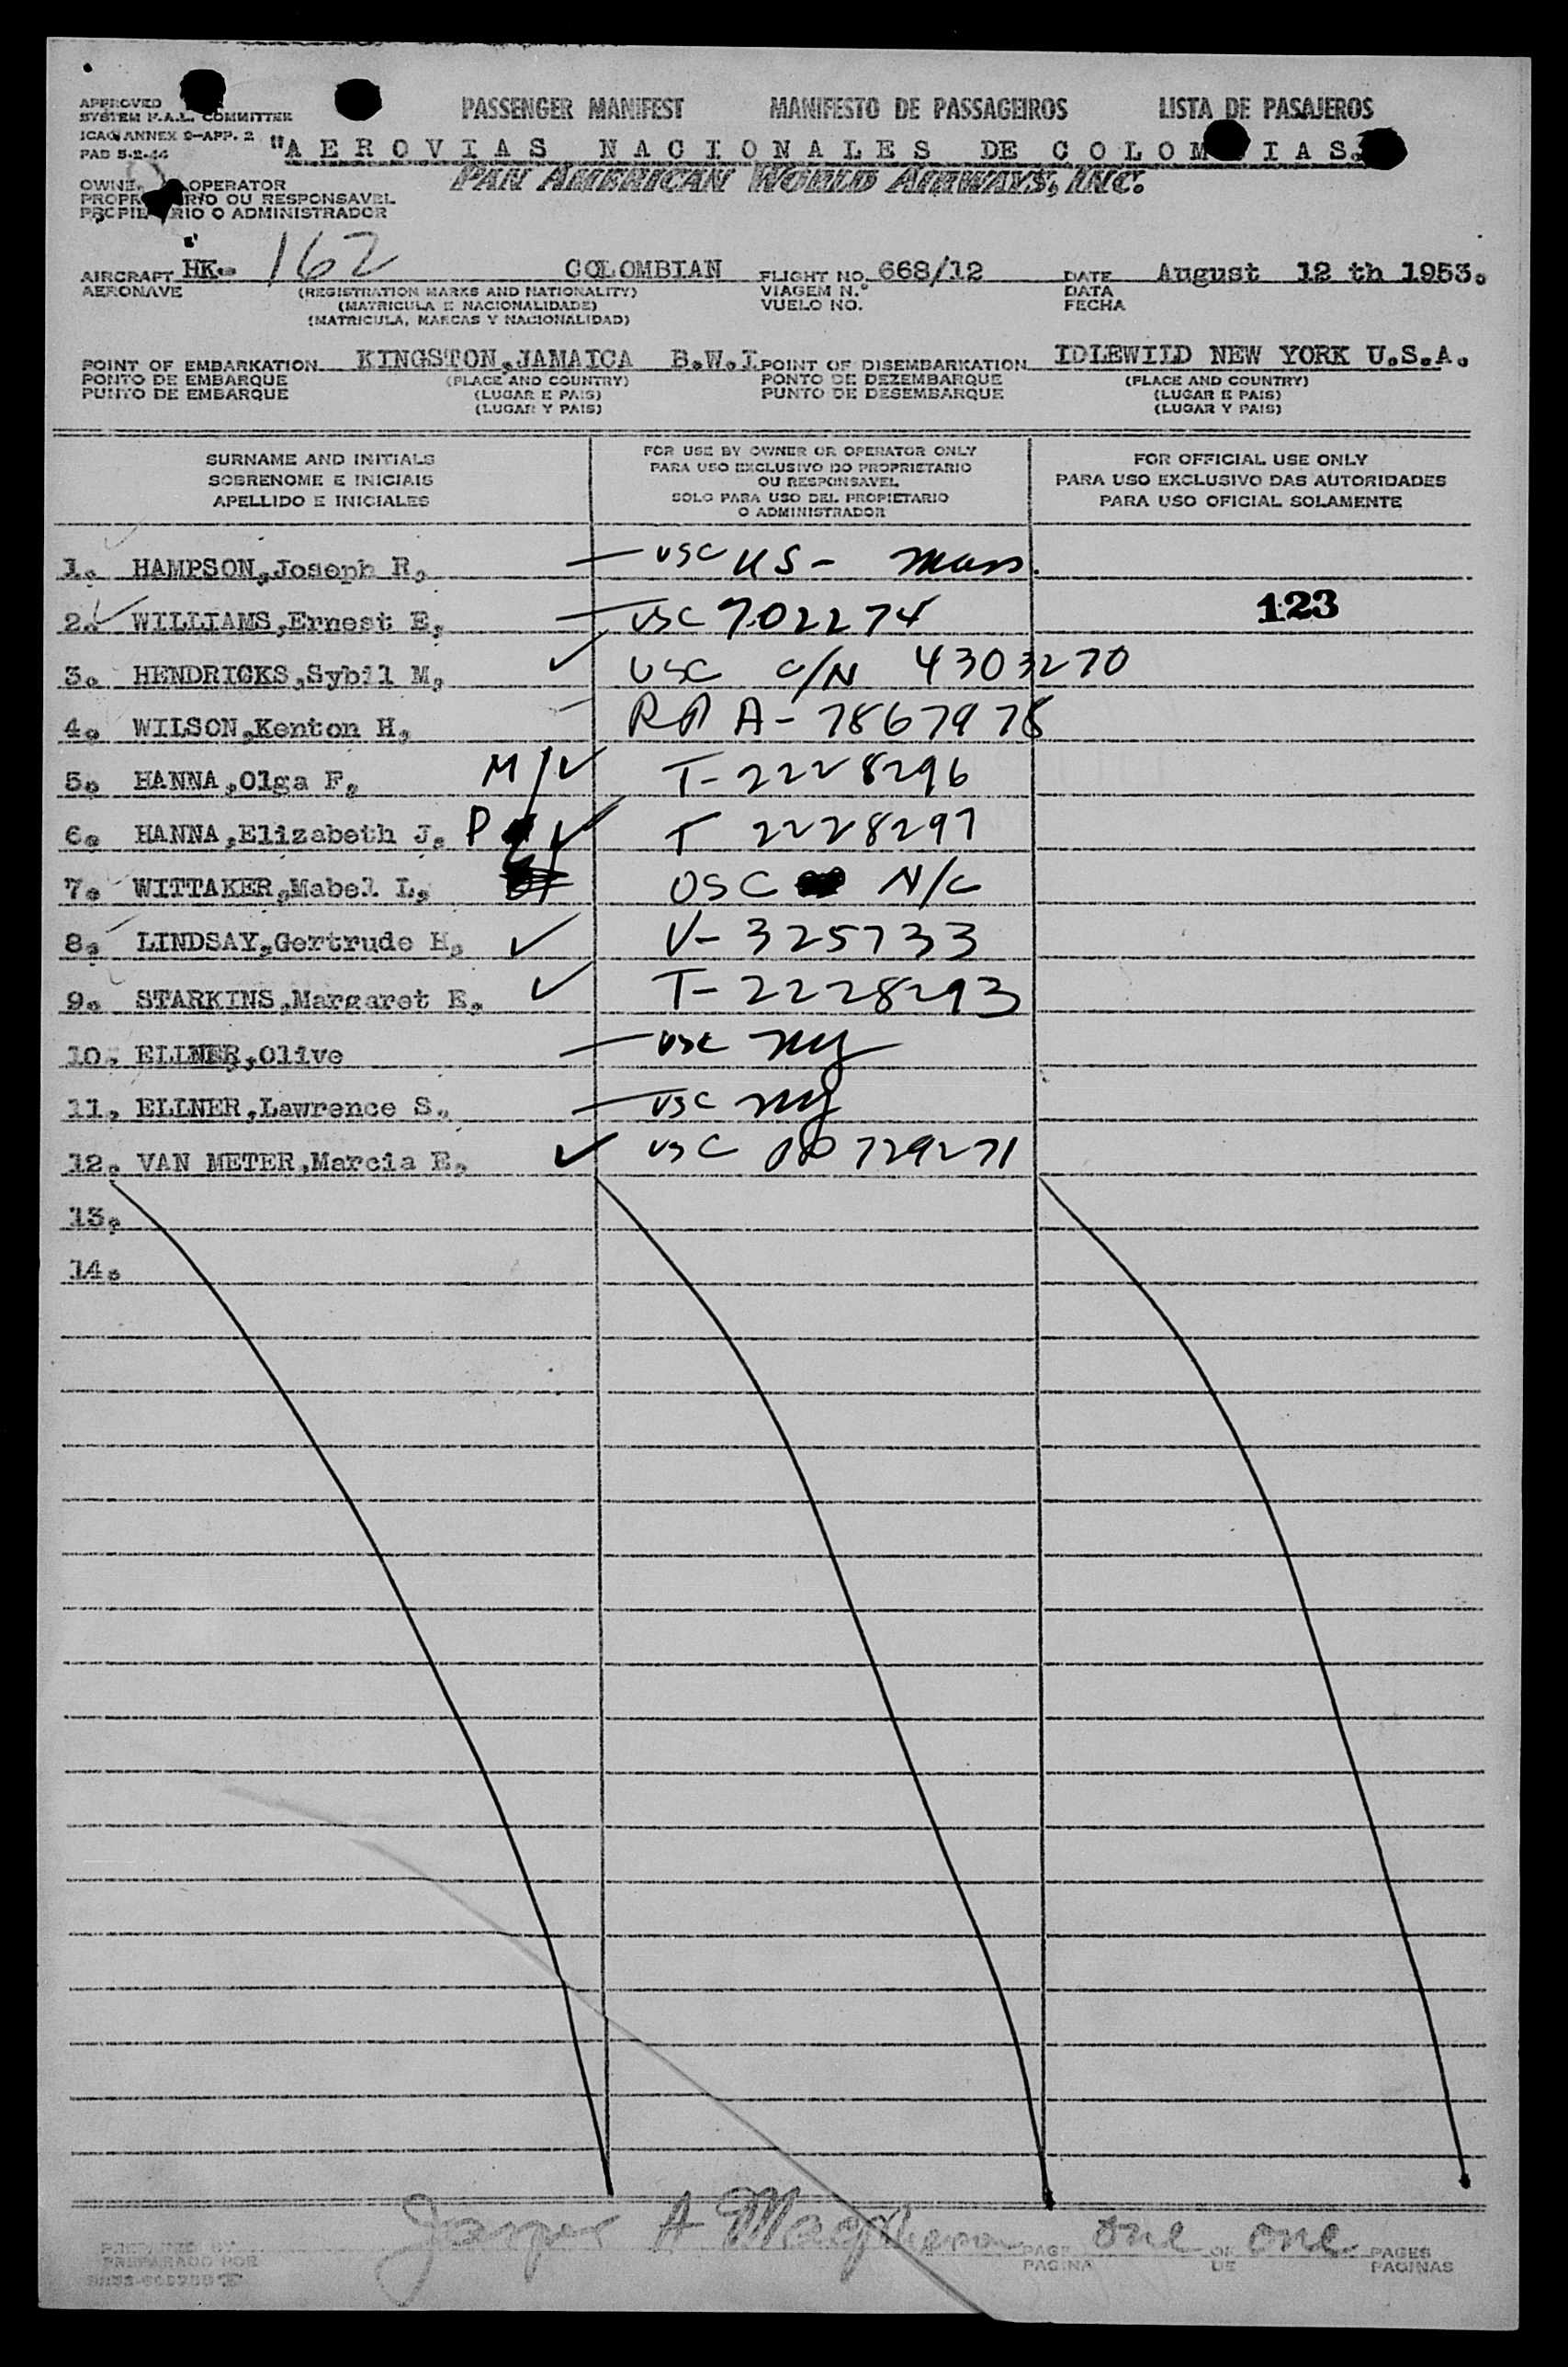 PASSENGER MANIFEST MANIFESTO DE PASSAGEIROS LISTA DE PASAJEROS
APPROVED
SYSTEM F.A.L. COMMITTEE
ICAO ANNEX 9-APP. 2
PAD 5-2-44
"AEROVIAS NACIONALES DE COLOM IAS.
PAN AMERICAN WORLD AIRWAYS, INC.
OWNE OPERATOR
PROPR RIO OU RESPONSAVEL
PROPIE RIO O ADMINISTRADOR
AIRCRAFT HK- 162 COLOMBIAN FLIGHT NO. 668/12 DATE August 12 th 1953.
AERONAVE (REGISTRATION MARKS AND NATIONALITY) VIAGEM N.º DATA
(MATRICULA E NACIONALIDADE) VUELO NO. FECHA
(MATRICULA, MARCAS Y NACIONALIDAD)
POINT OF EMBARKATION KINGSTON,JAMAICA B.W.I. POINT OF DISEMBARKATION IDLEWILD NEW YORK U.S.A.
PONTO DE EMBARQUE (PLACE AND COUNTRY) PONTO DE DEZEMBARQUE (PLACE AND COUNTRY)
PUNTO DE EMBARQUE (LUGAR E PAIS) PUNTO DE DESEMBARQUE (LUGAR E PAIS)
(LUGAR Y PAIS) (LUGAR Y PAIS)
SURNAME AND INITIALS
SOBRENOME E INICIAIS
APELLIDO E INICIALES
FOR USE BY OWNER OR OPERATOR ONLY
PARA USO EXCLUSIVO DO PROPRIETARIO
OU RESPONSAVEL
SOLO PARA USO DEL PROPIETARIO
O ADMINISTRADOR
FOR OFFICIAL USE ONLY
PARA USO EXCLUSIVO DAS AUTORIDADES
PARA USO OFICIAL SOLAMENTE
1. HAMPSON,Joseph R, — USC US - Mass.
2. ✓ WILLIAMS,Ernest E, — USC 702274 123
3. HENDRICKS,Sybil M, ✓ USC C/N 4303270
4. WILSON,Kenton H, — A-7867978
5. HANNA,Olga F, M/✓ T-2228296
6. HANNA,Elizabeth J. P ✓ T 2228297
7. WITTAKER,Mabel L, USC N/C
8. LINDSAY,Gertrude H, ✓ V-325733
9. STARKINS,Margaret E. ✓ T-2228293
10. ELLNER,Olive — USC NY
11. ELLNER,Lawrence S. — USC NY
12. VAN METER,Marcia E. ✓ USC 729271
13.
14.
PREPARED BY Jasper A PAGE one OF one PAGES
PREPARADO POR PAGINA DE PAGINAS